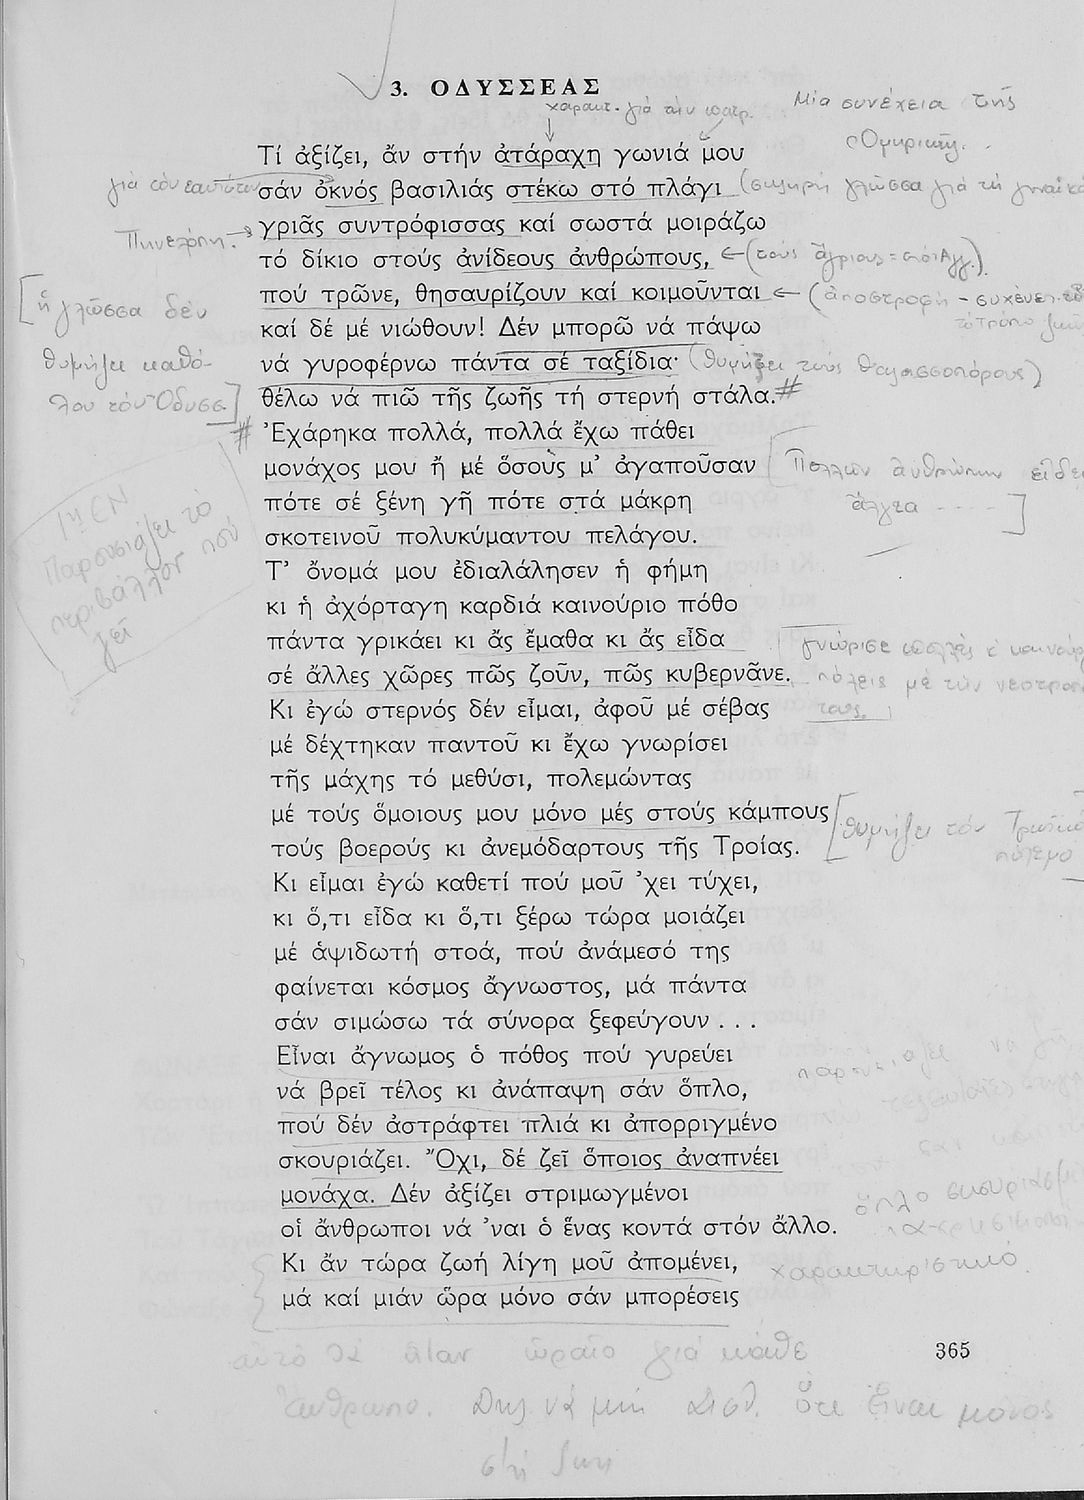 3. ΟΔΥΣΣΕΑΣ
χαρακτ. γιά τήν πατρ.
Μία συνέχεια τῆς
Ὁμηρικῆς.
Τί ἀξίζει, ἄν στήν ἀτάραχη γωνιά μου
γιά τόν ἑαυτόν
σάν ὀκνός βασιλιάς στέκω στό πλάγι
(σκληρή γλῶσσα γιά τή γυναῖκα
Πηνελόπη.
γριᾶς συντρόφισσας καί σωστά μοιράζω
τό δίκιο στούς ἀνίδεους ἀνθρώπους,
(τούς ἄγριους =
πού τρῶνε, θησαυρίζουν καί κοιμοῦνται
(ἀποστροφή -
τό τρόπο ζωῆς
[ἡ γλῶσσα δέν
καί δέ μέ νιώθουν! Δέν μπορῶ νά πάψω
θυμίζει καθό-
νά γυροφέρνω πάντα σέ ταξίδια·
(θυμίζει τούς θαλασσοπόρους)
λου τόν Ὀδυσσ.]
θέλω νά πιῶ τῆς ζωῆς τή στερνή στάλα.#
# Ἐχάρηκα πολλά, πολλά ἔχω πάθει
μονάχος μου ἤ μέ ὅσους μ’ ἀγαποῦσαν
[Πολλῶν ἀνθρώπων εἶδεν
πότε σέ ξένη γῆ πότε στά μάκρη
ἄλγεα ....]
1η ΕΝ
Παρουσιάζει τό
περιβάλλον πού
ζεῖ
σκοτεινοῦ πολυκύμαντου πελάγου.
Τ’ ὄνομά μου ἐδιαλάλησεν ἡ φήμη
κι ἡ ἀχόρταγη καρδιά καινούριο πόθο
πάντα γρικάει κι ἄς ἔμαθα κι ἄς εἶδα
γνώρισε πολλές κ καινούρ
σέ ἄλλες χῶρες πῶς ζοῦν, πῶς κυβερνᾶνε.
πόλεις μέ τήν νεοτροπ
τους.
Κι ἐγώ στερνός δέν εἶμαι, ἀφοῦ μέ σέβας
μέ δέχτηκαν παντοῦ κι ἔχω γνωρίσει
τῆς μάχης τό μεθύσι, πολεμώντας
μέ τούς ὅμοιους μου μόνο μές στούς κάμπους
[θυμίζει τόν Τρωικό
πόλεμο
τούς βοερούς κι ἀνεμόδαρτους τῆς Τροίας.
Κι εἶμαι ἐγώ καθετί πού μοῦ ’χει τύχει,
κι ὅ,τι εἶδα κι ὅ,τι ξέρω τώρα μοιάζει
μέ ἁψιδωτή στοά, πού ἀνάμεσό της
φαίνεται κόσμος ἄγνωστος, μά πάντα
σάν σιμώσω τά σύνορα ξεφεύγουν . . .
Εἶναι ἄγνωμος ὁ πόθος πού γυρεύει
νά βρεῖ τέλος κι ἀνάπαψη σάν ὅπλο,
πού δέν ἀστράφτει πλιά κι ἀπορριγμένο
σκουριάζει. Ὄχι, δέ ζεῖ ὅποιος ἀναπνέει
μονάχα. Δέν ἀξίζει στριμωγμένοι
ὅπλο σκουριασμέ
οἱ ἄνθρωποι νά ’ναι ὁ ἕνας κοντά στόν ἄλλο.
Κι ἄν τώρα ζωή λίγη μοῦ ἀπομένει,
χαρακτηριστικό
μά καί μιάν ὥρα μόνο σάν μπορέσεις
365
αὐτό θά ἦταν ὡραῖο γιά κάθε
ἄνθρωπο. Δηλ. νά μήν ὅτι εἶναι μόνος
στή ζωή